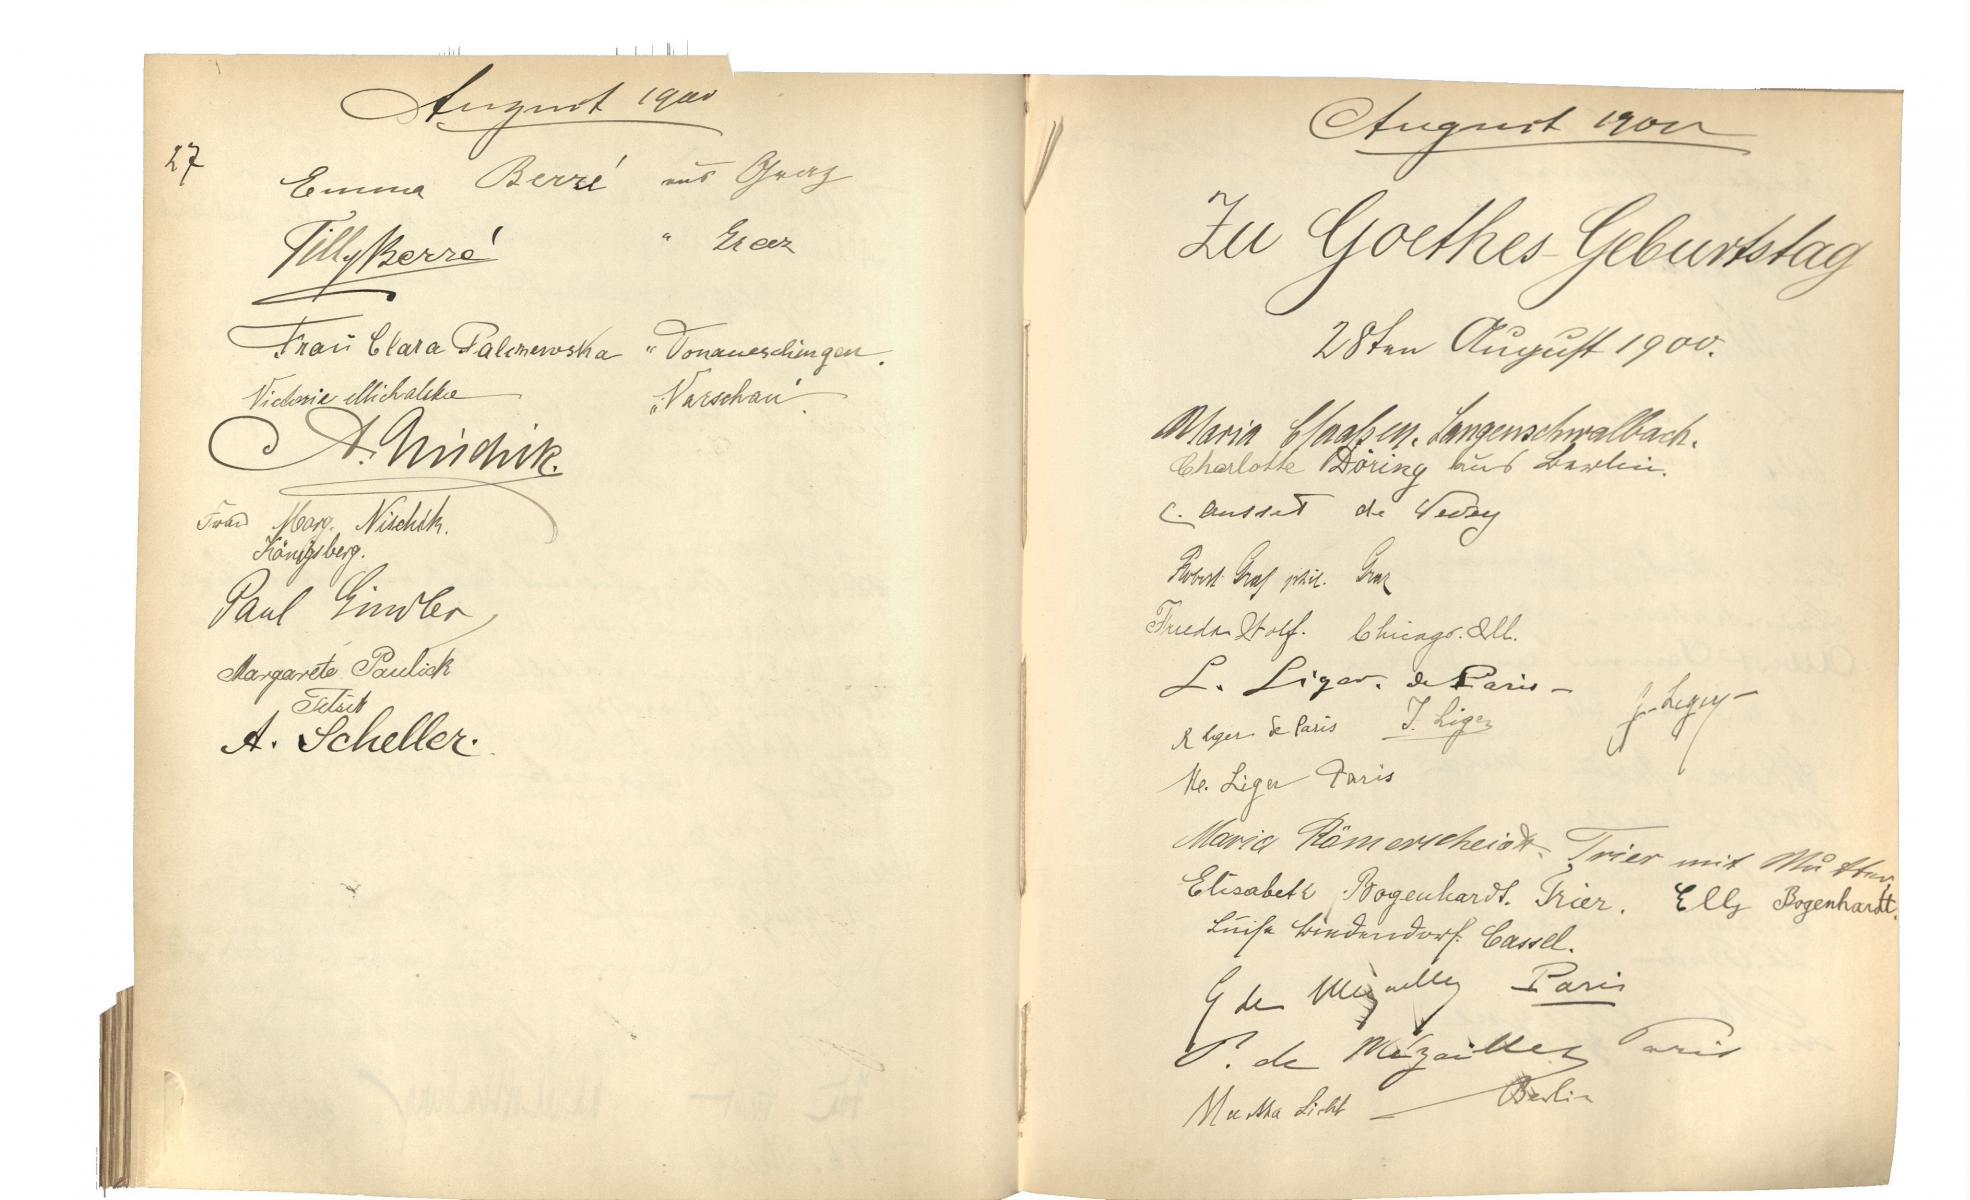 August 1900
27
Emma Berré aus Graz
Tilly Berré " Graz
Frau Clara Palmewska " Donaueschingen.
Victoria Michalska " Warschau.
A. Nischik.
Frau Marg. Nischik.
Königsberg.
Paul Gindler
Margarete Paulick
Tilsit
A. Scheller.
August 1900
Zu Goethes-Geburtstag
28ten August 1900.
Maria Claaßen. Langenschwalbach.
Charlotte Döring aus Berlin.
C. Ausset de Vevey
Robert Graf phil. Graz
Frieda Wolf. Chicago. Ill.
L. Liger. de Paris -
R Liger de Paris J. Liger
Me. Liger Paris
Maria Römerscheidt. Trier mit Mutter
Elisabeth Bogenhardt. Trier. Elly Bogenhardt.
Luise Cassel.
G de Mézailles Paris
P. de Mézailles Paris
Martha Licht — Berlin